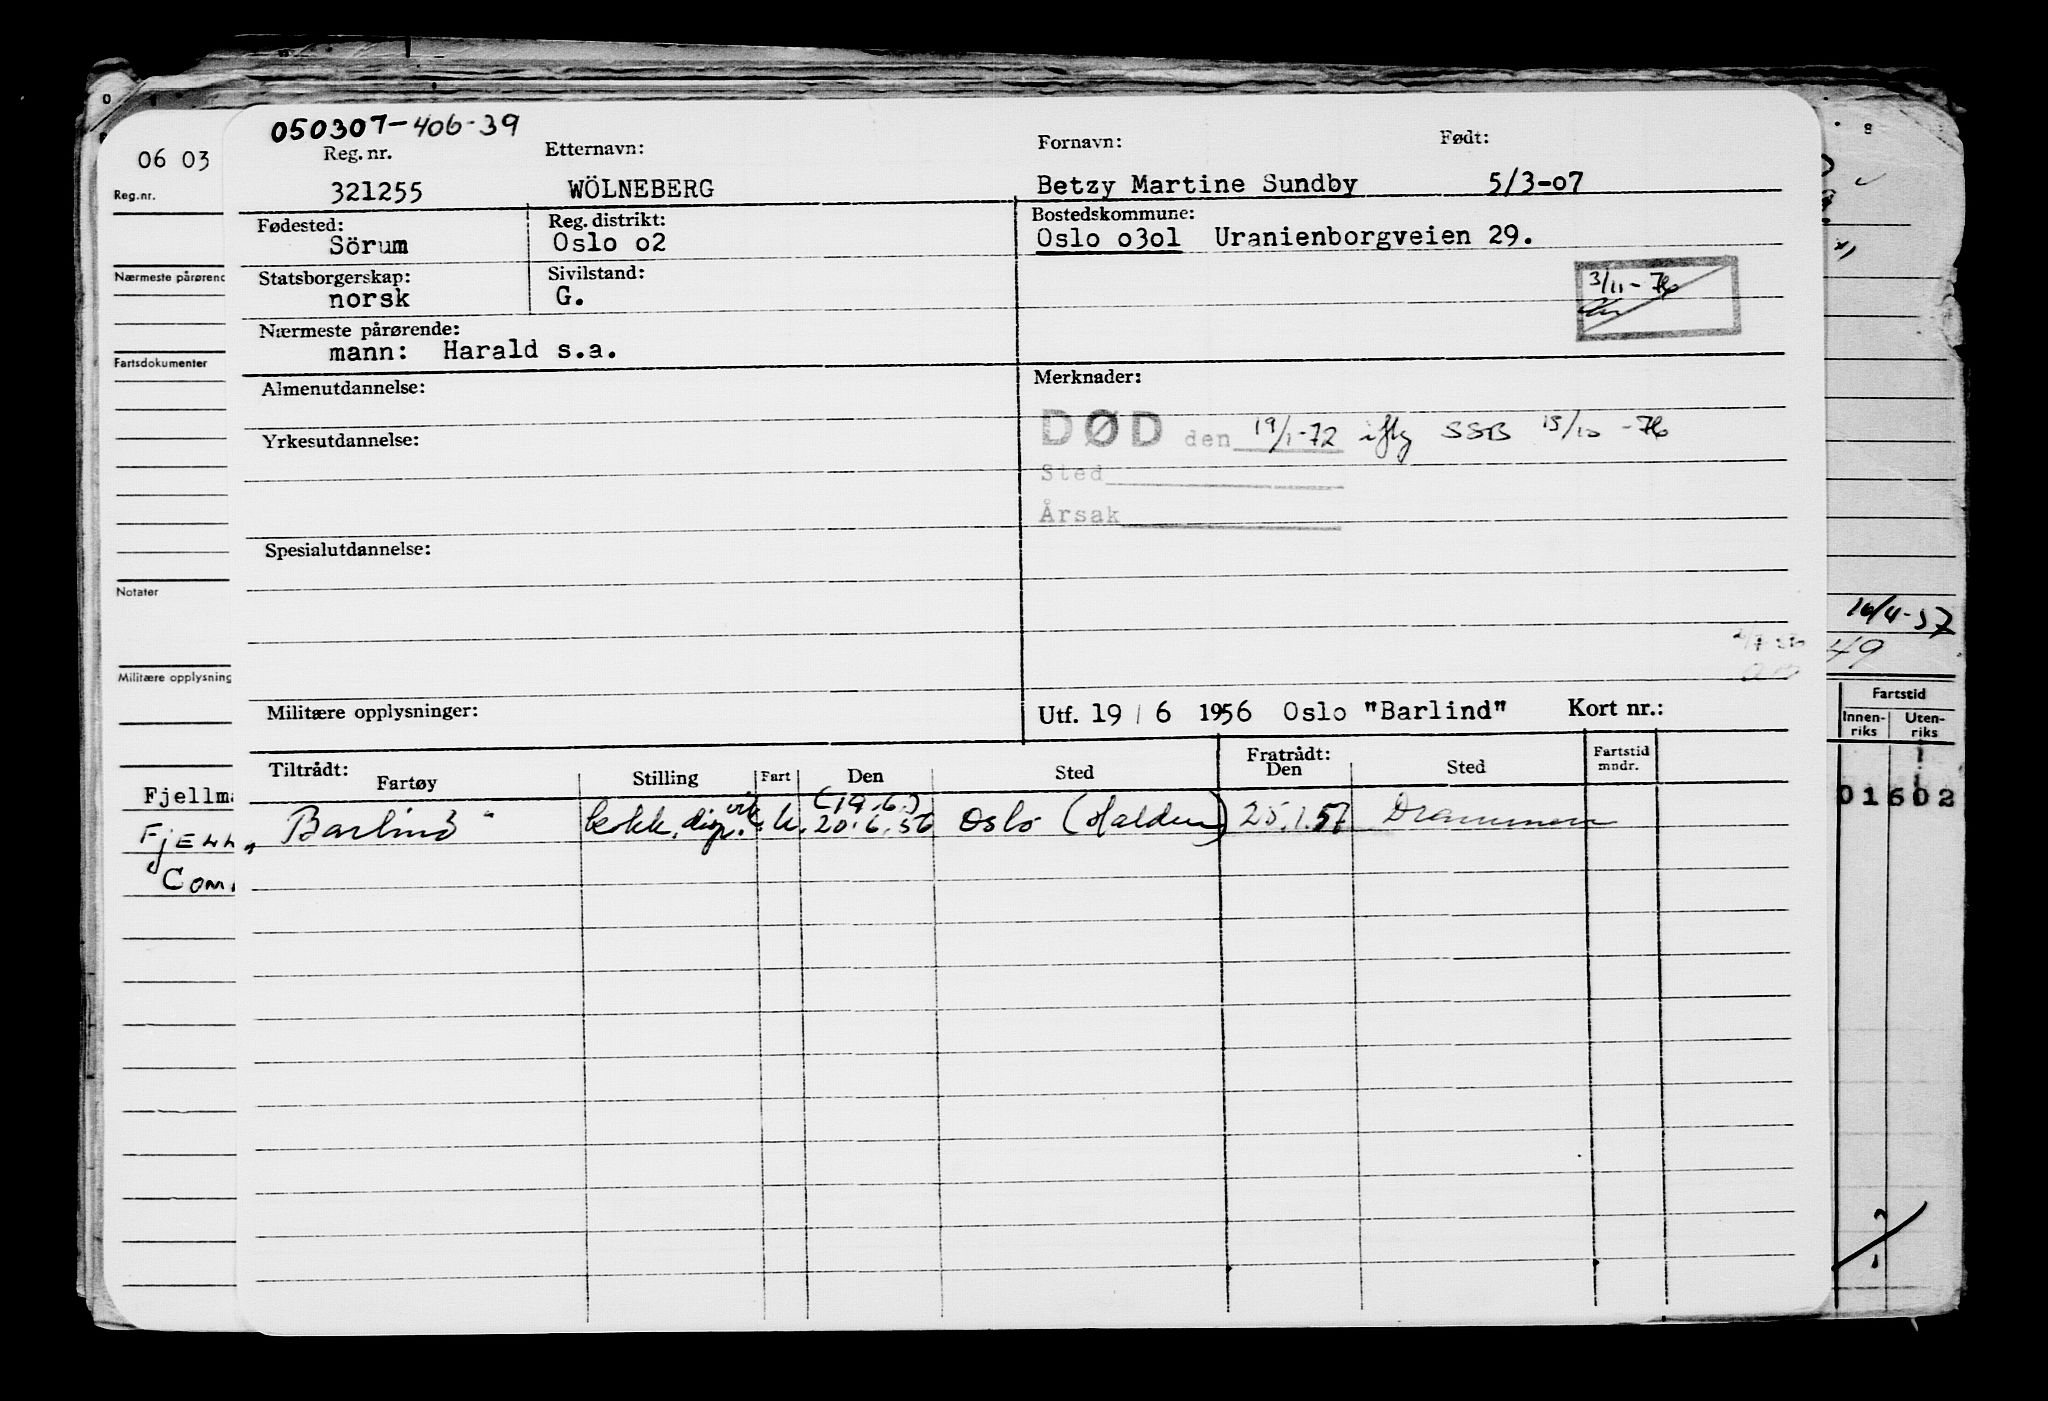 050307-406-39
Reg. nr. Etternavn: Fornavn: Født:
321255 WÖLNEBERG Betzy Martine Sundby 5/3-07
Fødested: Reg. distrikt: Bostedskommune:
Sörum Oslo o2 Oslo o3o1 Uranienborgveien 29.
Statsborgerskap: Sivilstand:
norsk G.
3/11-76
Nærmeste pårørende:
mann: Harald s.a.
Almenutdannelse: Merknader:
DØD den 19/1-72 iflg SSB 15/10-76
Yrkesutdannelse:
Sted
Årsak
Spesialutdannelse:
Militære opplysninger: Utf. 19/6 1956 Oslo "Barlind" Kort nr.:
Tiltrådt: Fratrådt: Fartstid
Fartøy Stilling Fart Den Sted Den Sted mndr.
(19.6.)
Barlind" kokk, disp. vik. u. 20.6.56 Oslo (Halden) 25.1.57 Drammen
06 03
Reg.nr.
Nærmeste pårørend
Fartsdokumenter
Notater
Militære opplysning
Fjellma
FJELL
"Com
8
16/4-57
49
Fartstid
Innen-riks Uten-riks
01602